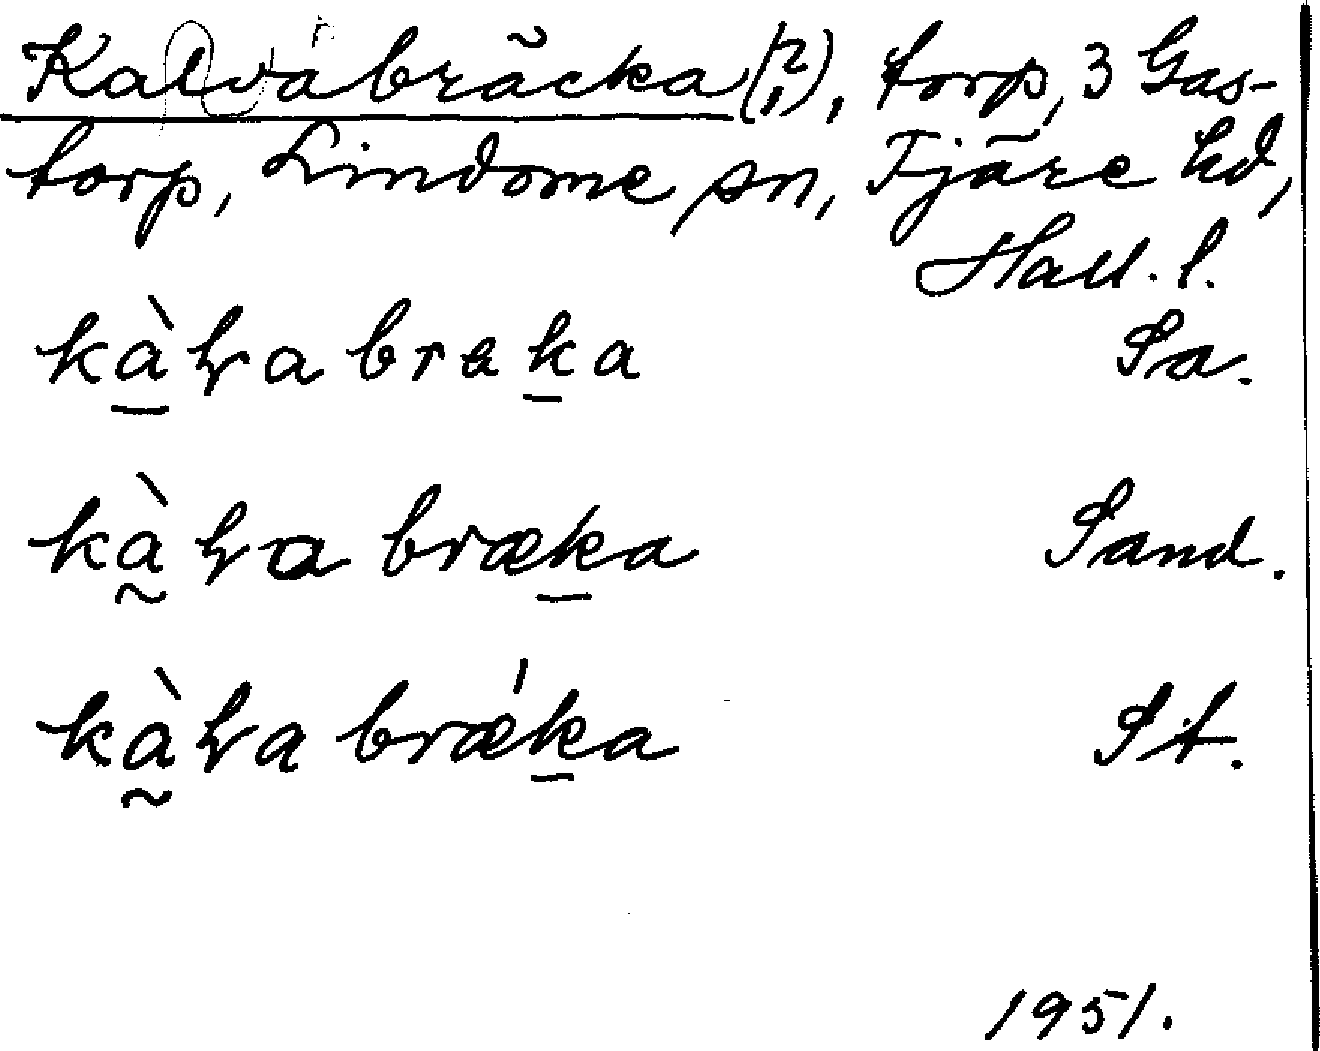 Kalvabräcka (1, 2), torp, 3 Gas-
torp, Lindome sn, Fjäre hd,
Hall. l.
kàlvabreka Sa.
kàlva bræka Sand.
kàlva brǽka St.
1951.